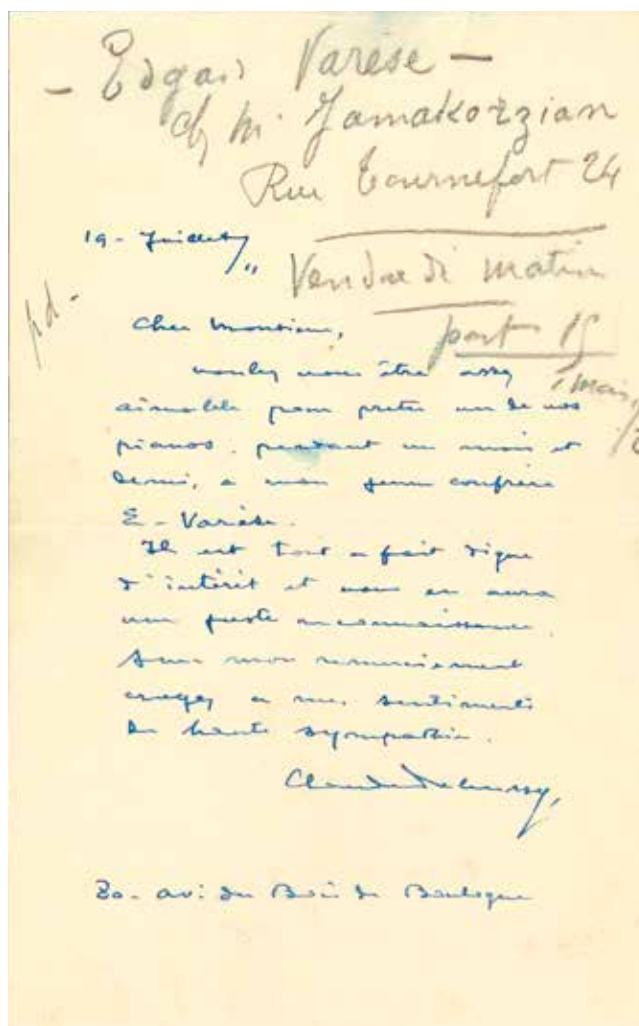 - Edgar Varèse -
chez M. Jamakorzian
Rue Tournefort 24
19 - Juillet / "
Vendredi matin
p.d -
Cher Monsieur,
port 15
voulez vous être assez
1 mois
aimable pour prêter un de vos
pianos, pendant un mois et
demi, à mon jeune confrère
E - Varèse.
Il est tout a fait digne
d'intérêt et vous en aura
une juste reconnaissance.
mon remerciement
croyez a mes sentiments
de haute sympathie.
Claude Debussy,
80 - av: du Bois de Boulogne